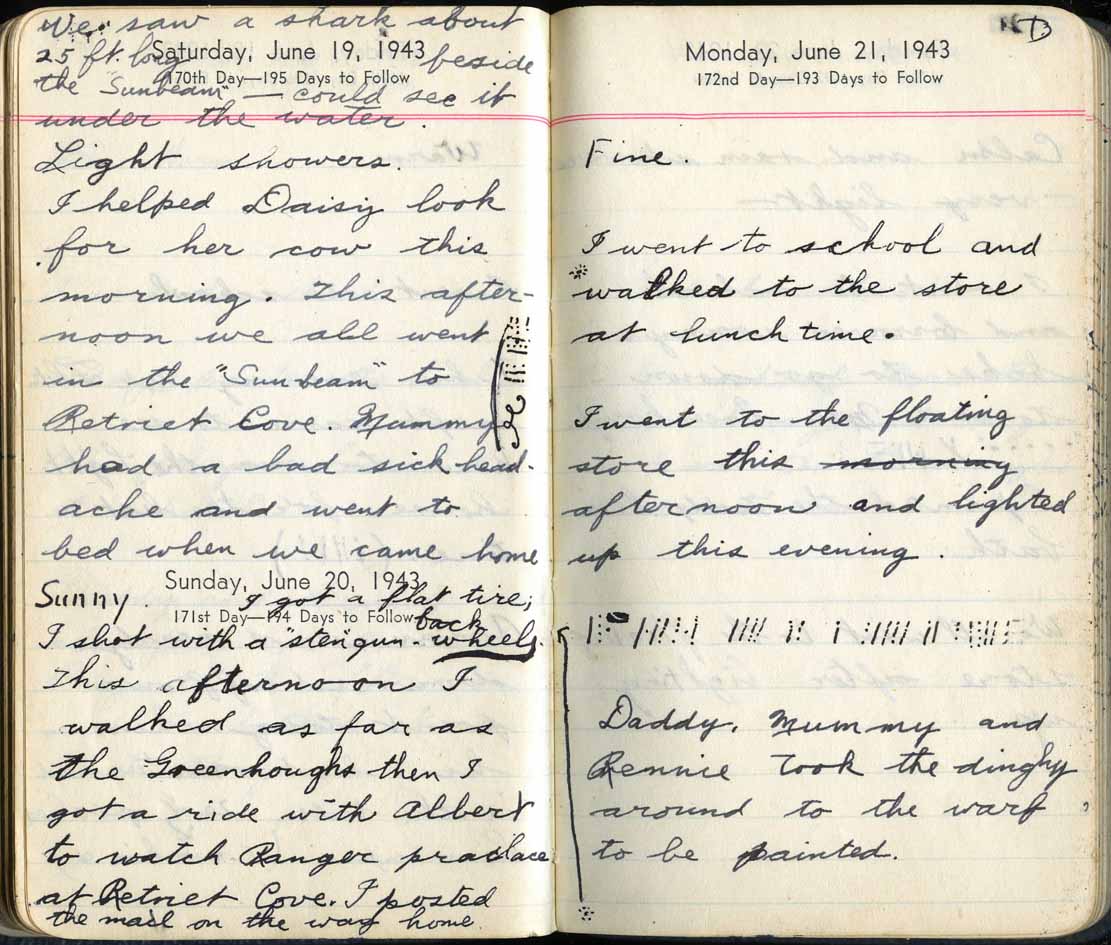 We saw a shark about
25 ft. long beside
Saturday, June 19, 1943
170th Day—195 Days to Follow
the "Sunbeam" — could see it
under the water.
Light showers.
I helped Daisy look
for her cow this
morning. This after-
noon we all went
in the "Sunbeam" to
Retriet Cove. Mummy
had a bad sick head-
ache and went to
bed when we came home
Sunday, June 20, 1943
171st Day—194 Days to Follow
Sunny. I got a flat tire;
back
I shot with a "sten" gun - wheels.
This afternoon I
walked as far as
the Greenhoughs then I
got a ride with Albert
to watch Ranger praclace
at Retriet Cove. I posted
the mail on the way home.
Monday, June 21, 1943
172nd Day—193 Days to Follow
Fine.
I went to school and
walked to the store
at lunch time.
I went to the floating
store this morning
afternoon and lighted
up this evening
Daddy, Mummy and
Rennie took the dinghy
around to the warf
to be painted.